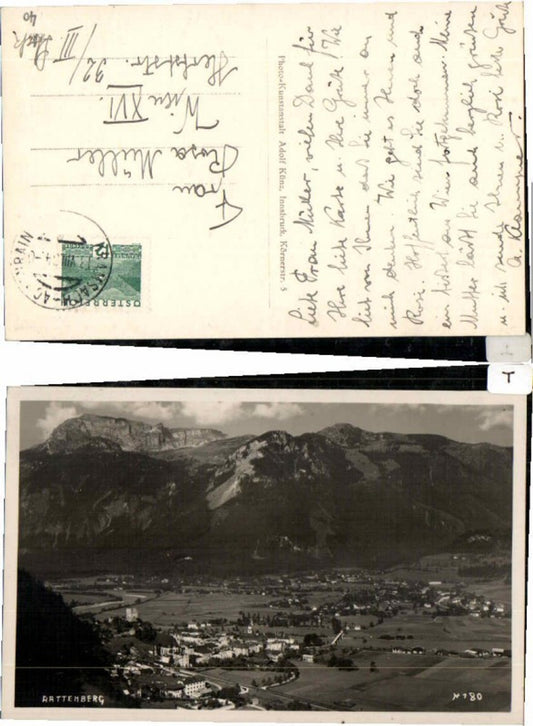 Liebe Frau Müller, vielen Dank für
Ihre liebe Karte u. Ihre Güte! Wie
lieb von Ihnen daß Sie immer an
mich denken. Wie geht es Ihnen und
Rosi. Hoffentlich sind sie doch auch
ein bißchen aus Wien fortgekommen. Meine
Mutter läßt Sie auch herzlich grüßen
u. ich sende Ihnen u. Rosi liebe Grüße
Photo-Kunstanstalt Adolf Künz, Innsbruck, Körnerstr. 5
Frau
Rosa Müller
Wien XVI.
Herbststr. 32/
III Stock
40
ÖSTERREICH
RATTENBERG
T